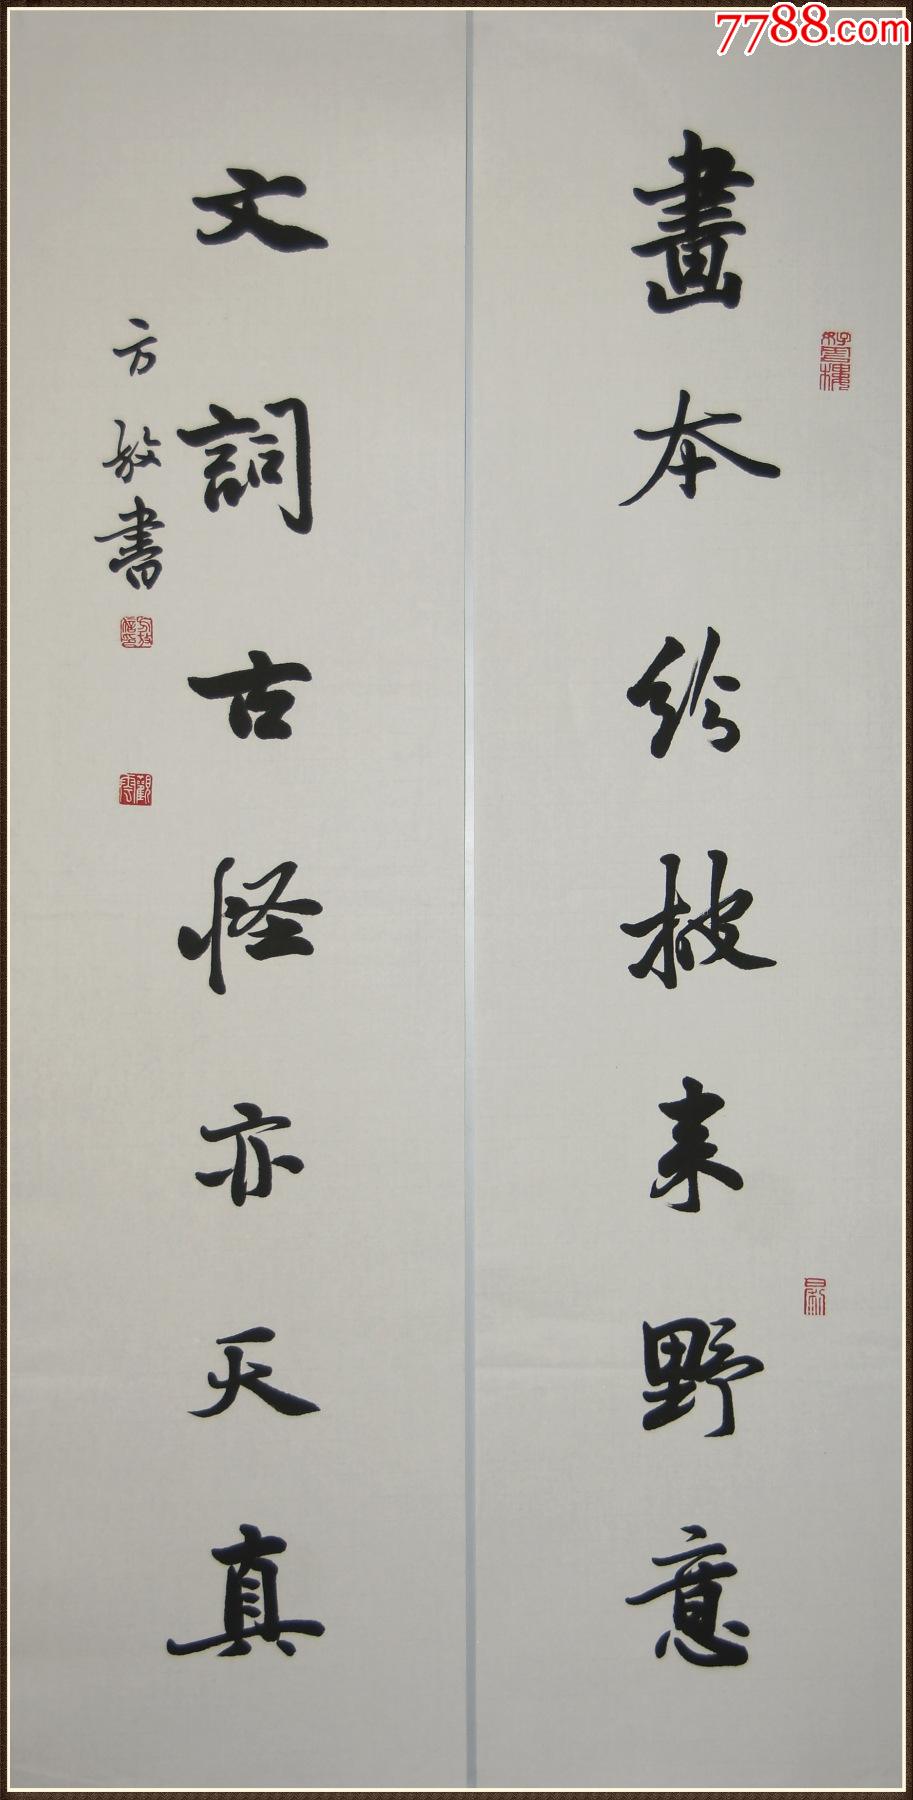 7788.com
畫本紛披来野意
文詞古怪亦天真
方放書